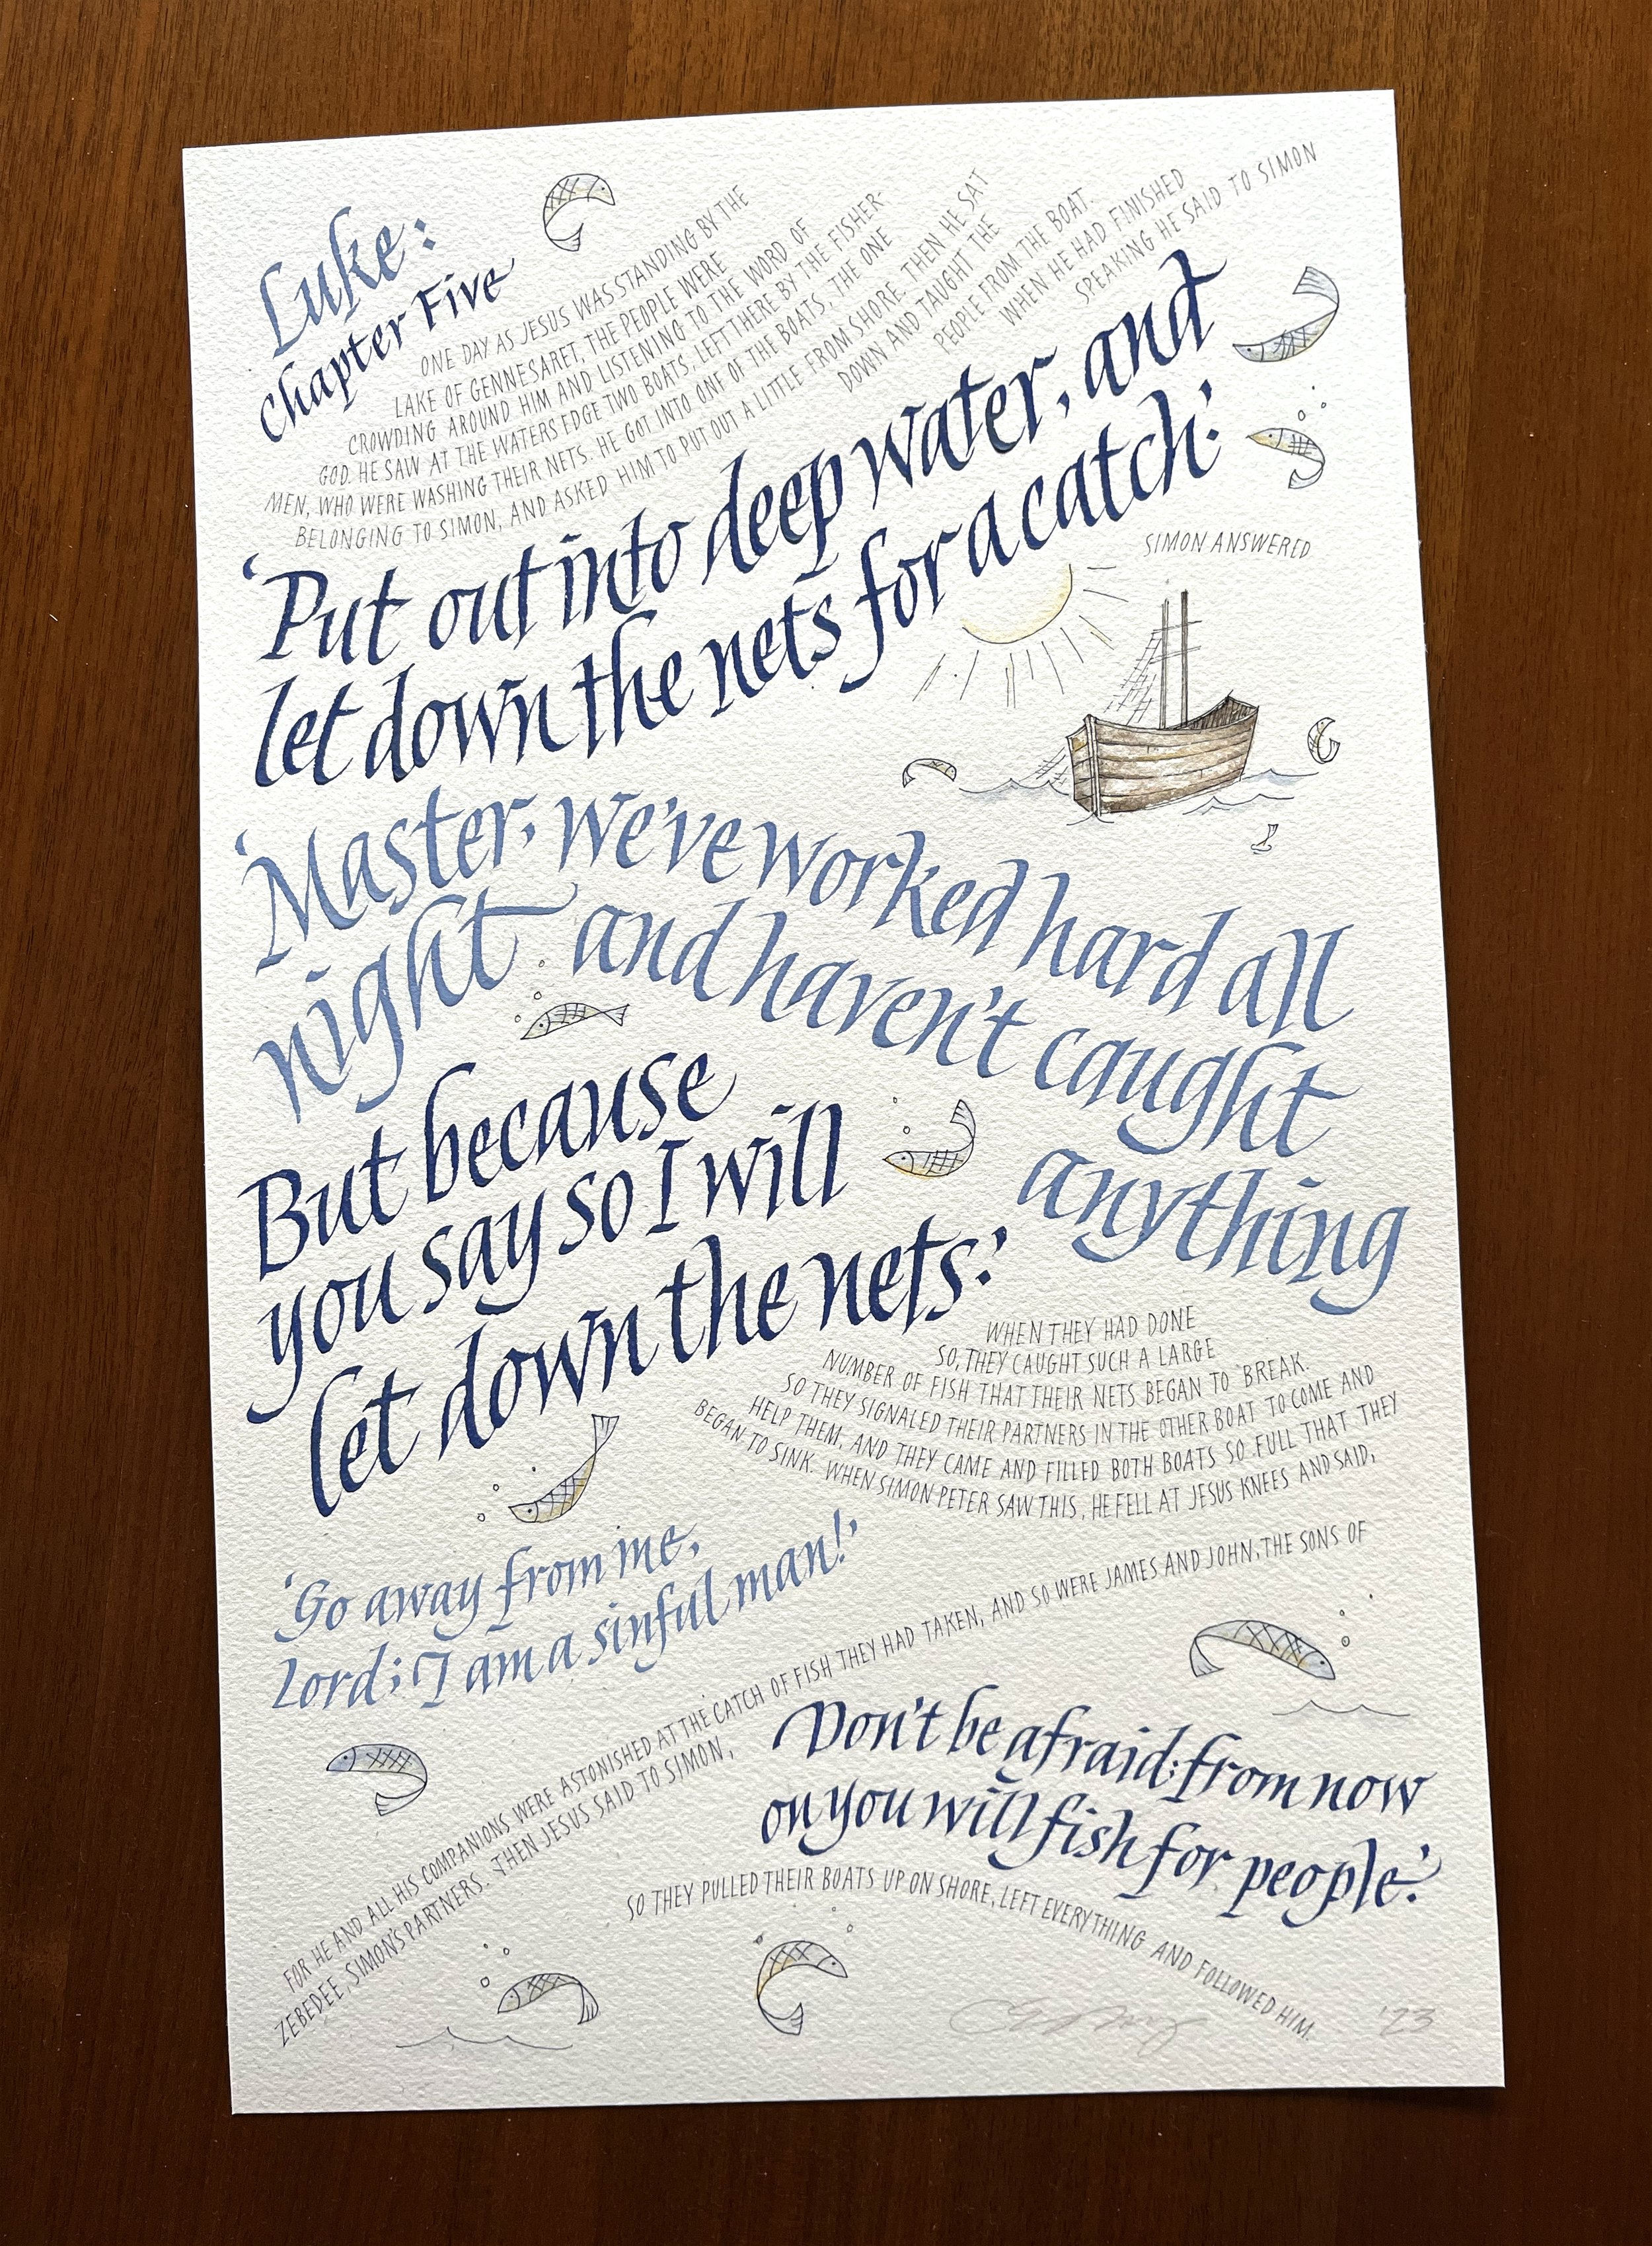 Luke:
Chapter Five
ONE DAY AS JESUS WAS STANDING BY THE
LAKE OF GENNESARET, THE PEOPLE WERE
CROWDING AROUND HIM AND LISTENING TO THE WORD OF
GOD. HE SAW AT THE WATERS EDGE TWO BOATS, LEFT THERE BY THE FISHER-
MEN, WHO WERE WASHING THEIR NETS. HE GOT INTO ONE OF THE BOATS, THE ONE
BELONGING TO SIMON, AND ASKED HIM TO PUT OUT A LITTLE FROM SHORE. THEN HE SAT
DOWN AND TAUGHT THE
PEOPLE FROM THE BOAT.
WHEN HE HAD FINISHED
SPEAKING HE SAID TO SIMON
'Put out into deep water, and
let down the nets for a catch.'
SIMON ANSWERED
'Master, we've worked hard all
night and haven't caught
anything
But because
you say so I will
let down the nets.'
WHEN THEY HAD DONE
SO, THEY CAUGHT SUCH A LARGE
NUMBER OF FISH THAT THEIR NETS BEGAN TO BREAK.
SO THEY SIGNALED THEIR PARTNERS IN THE OTHER BOAT TO COME AND
HELP THEM, AND THEY CAME AND FILLED BOTH BOATS SO FULL THAT THEY
BEGAN TO SINK. WHEN SIMON PETER SAW THIS, HE FELL AT JESUS KNEES AND SAID,
'Go away from me,
Lord; I am a sinful man!'
FOR HE AND ALL HIS COMPANIONS WERE ASTONISHED AT THE CATCH OF FISH THEY HAD TAKEN, AND SO WERE JAMES AND JOHN, THE SONS OF
ZEBEDEE, SIMON'S PARTNERS. THEN JESUS SAID TO SIMON,
'Don't be afraid; from now
on you will fish for people.'
SO THEY PULLED THEIR BOATS UP ON SHORE, LEFT EVERYTHING AND FOLLOWED HIM.
'23